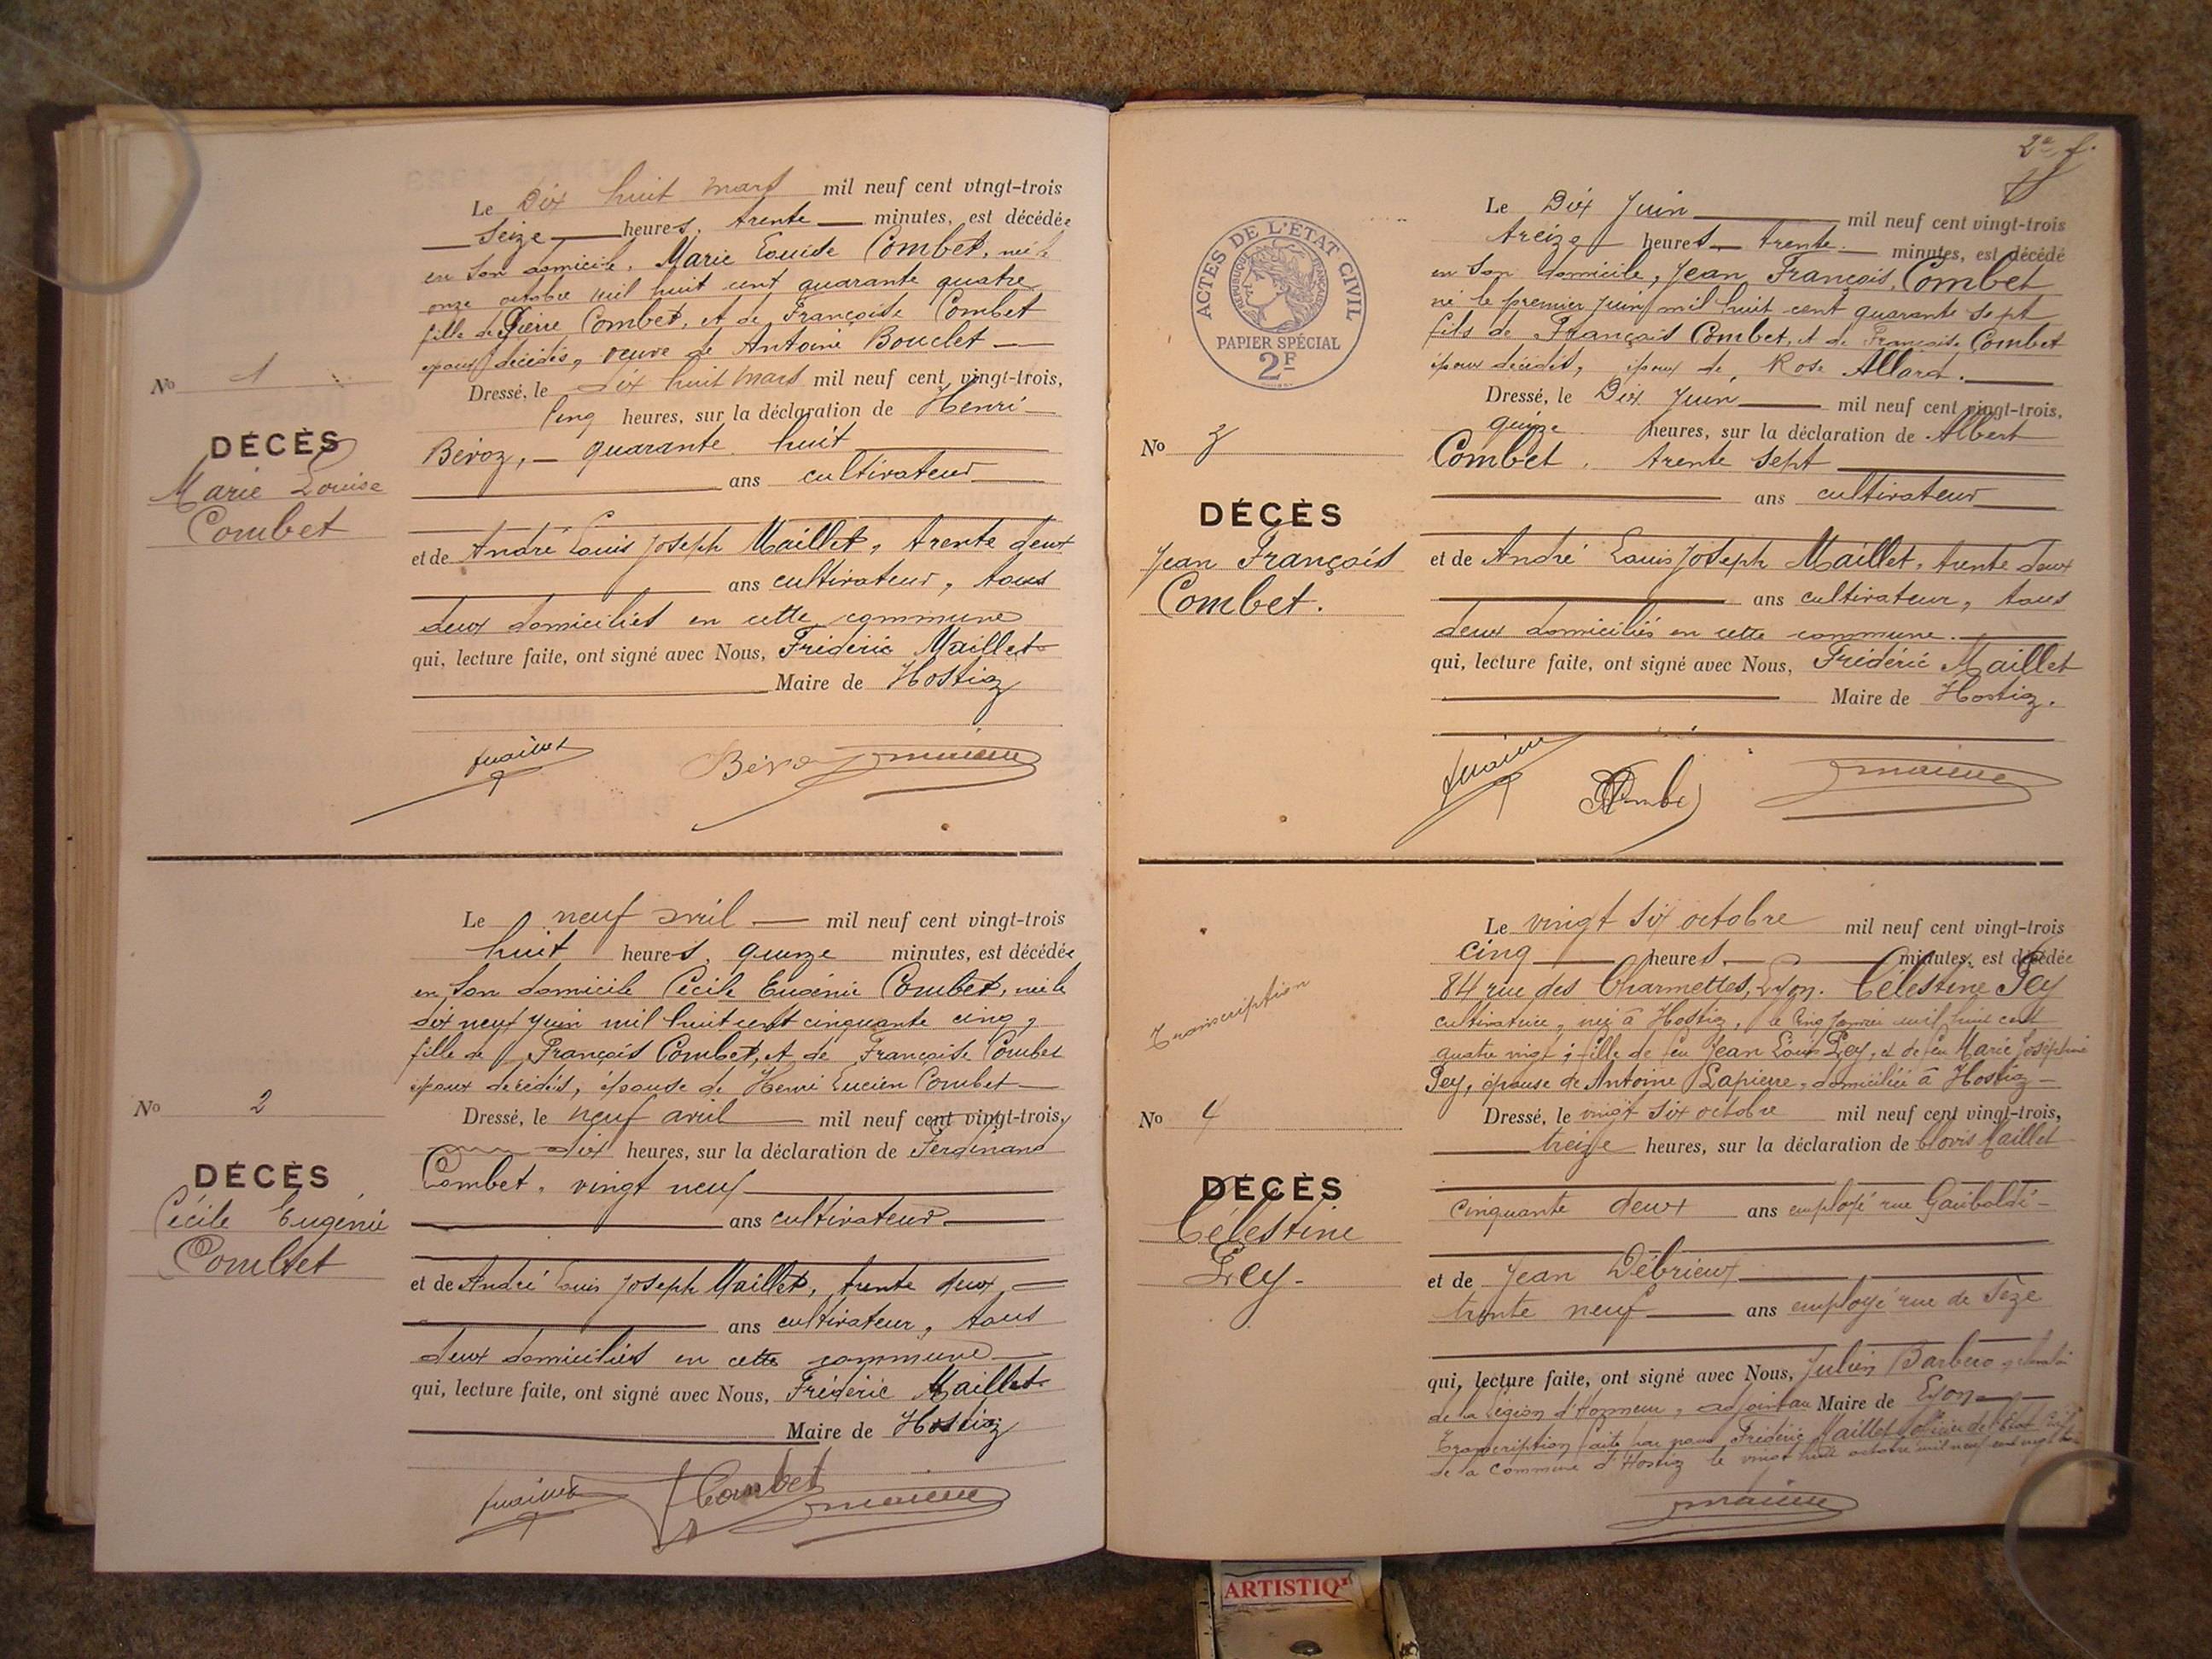 Le Dix huit mars mil neuf cent vingt-trois
Seize heures, trente minutes, est décédée
en son domicile, Marie Louise Combet, née le
onze octobre mil huit cent quarante quatre
fille de Pierre Combet, et de Françoise Combet
époux décédés, veuve de Antoine Bouclet
No 1
Dressé, le dix huit mars mil neuf cent vingt-trois,
Cinq heures, sur la déclaration de Henri
DÉCÈS
Marie Louise
Combet
Béroz, quarante huit
ans cultivateur
et de André Louis Joseph Maillet, trente deux
ans cultivateur, tous
deux domiciliés en cette commune
qui, lecture faite, ont signé avec Nous, Frédéric Maillet
Maire de Hostiaz
Le neuf avril mil neuf cent vingt-trois
huit heures, quinze minutes, est décédée
en son domicile Cécile Eugénie Combet, née le
dix neuf juin mil huit cent cinquante cinq,
fille de François Combet, et de Françoise Combet
époux décédés, épouse de Henri Lucien Combet
No 2
Dressé, le neuf avril mil neuf cent vingt-trois,
dix heures, sur la déclaration de Ferdinand
DÉCÈS
Cécile Eugénie
Combet
Combet, vingt neuf
ans cultivateur
et de André Louis Joseph Maillet, trente deux
ans cultivateur, tous
deux domiciliés en cette commune
qui, lecture faite, ont signé avec Nous, Frédéric Maillet
Maire de Hostiaz
Combet
2e f.
ACTES DE L'ÉTAT CIVIL
RÉPUBLIQUE FRANÇAISE
PAPIER SPÉCIAL
2F
Le Dix Juin mil neuf cent vingt-trois
treize heures trente minutes, est décédé
en son domicile, Jean François Combet
né le premier juin mil huit cent quarante sept
fils de François Combet, et de Françoise Combet
époux décédés, époux de Rose Allard.
Dressé, le Dix Juin mil neuf cent vingt-trois,
quinze heures, sur la déclaration de Albert
No 3
DÉCÈS
Jean François
Combet.
Combet, trente sept
ans cultivateur
et de André Louis Joseph Maillet, trente deux
ans cultivateur, tous
deux domiciliés en cette commune.
qui, lecture faite, ont signé avec Nous, Frédéric Maillet
Maire de Hostiaz.
Transcription
Le vingt six octobre mil neuf cent vingt-trois
cinq heures, minutes, est décédée
84 rue des Charmettes, Lyon. Célestine Pey
cultivatrice, née à Hostiaz, le cinq janvier mil huit cent
quatre vingt; fille de feu Jean Louis Pey, et de feu Marie Joséphine
Pey, épouse de Antoine Lapierre, domiciliée à Hostiaz
No 4
Dressé, le vingt six octobre mil neuf cent vingt-trois,
treize heures, sur la déclaration de Clovis Maillet
DÉCÈS
Célestine
Pey
cinquante deux ans employé rue Garibaldi
et de Jean Débrieux
trente neuf ans employé rue de Sèze
qui, lecture faite, ont signé avec Nous, Julien Barbero
de la Légion d'Honneur, adjoint au Maire de Lyon
Transcription faite par nous Frédéric Maillet officier de l'état civil
de la Commune d'Hostiaz le vingt huit octobre mil neuf cent vingt trois
ARTISTIQ